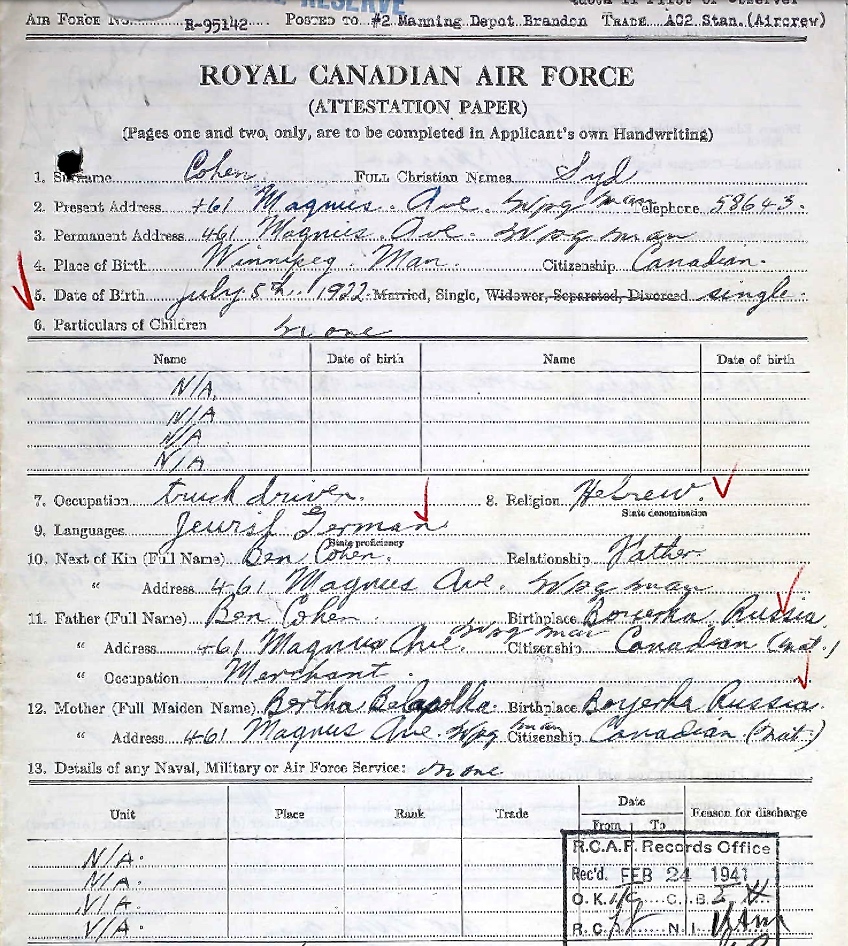 RESERVE
AIR FORCE No. R-95142 POSTED TO #2 Manning Depot Brandon TRADE AC2 Stan.(Aircrew)
ROYAL CANADIAN AIR FORCE
(ATTESTATION PAPER)
(Pages one and two, only, are to be completed in Applicant's own Handwriting)
1. Surname Cohen FULL Christian Names Syd
2. Present Address 461 Magnus Ave. Wpg man Telephone 58643.
3. Permanent Address 461 Magnus Ave. Wpg man
4. Place of Birth Winnipeg. Man. Citizenship Canadian.
5. Date of Birth July 5th, 1922 Married, Single, Widower, Separated, Divorced single.
6. Particulars of Children none
Name Date of birth Name Date of birth
N/A.
N/A
N/A
N/A
7. Occupation truck driver. 8. Religion Hebrew.
State denomination
9. Languages German
State proficiency
10. Next of Kin (Full Name) Ben Cohen. Relationship Father
" Address 461 Magnus Ave. Wpg man
11. Father (Full Name) Ben Cohen Birthplace Russia
" Address 461 Magnus Ave. Wpg man Citizenship Canadian (nat.)
" Occupation Merchant.
12. Mother (Full Maiden Name) Bertha Birthplace Russia.
" Address 461 Magnus Ave. Wpg man Citizenship Canadian (nat.)
13. Details of any Naval, Military or Air Force Service: none
Unit Place Rank Trade Date Reason for discharge
From To
N/A.
N/A.
N/A.
N/A.
R.C.A.F. Records Office
Rec'd. FEB 24 1941
O.K. C.I.B.
R.C. N.I.